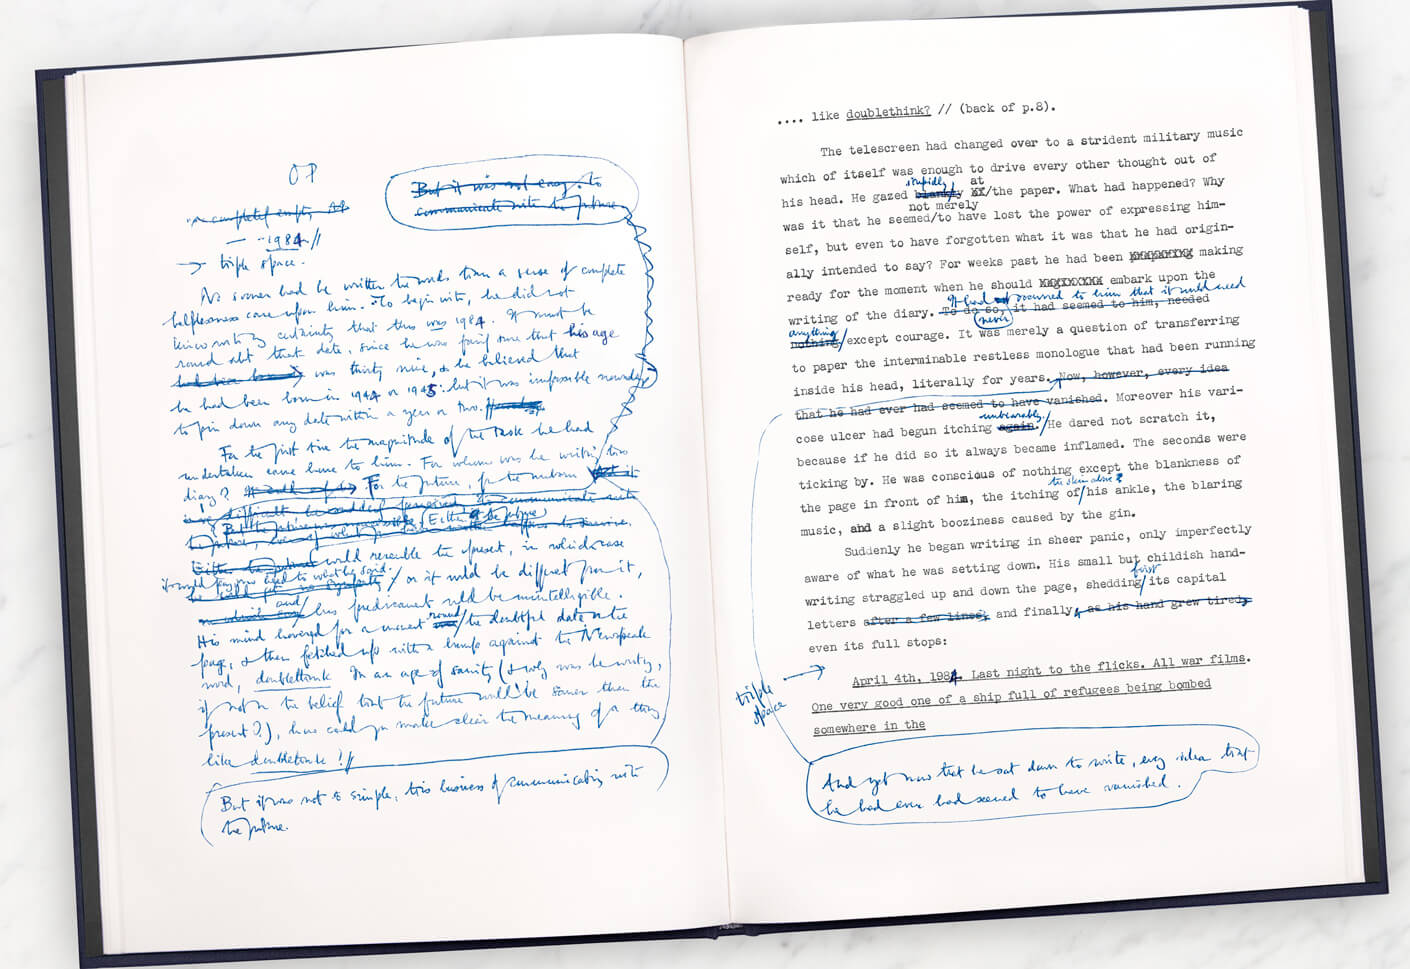 OP
But it was not easy to
communicate with the future
completely empty. At
— "1984 //
→ triple space.
No sooner had he written the words than a sense of complete
helplessness came upon him. To begin with, he did not
know with any certainty that this was 1984. It must be
round abt that date, since he was fairly sure that his age
was thirty nine, & he believed that
he had been born in 1944 or 1945: but it was impossible nowadays
to pin down any date within a year or two.
For the first time the magnitude of the task he had
undertaken came home to him. For whom was he writing this
diary? For the future, for the unborn
to communicate with
the future,
would resemble the present, in which case
it would pay no heed to what he said:
/ or it would be different from it,
and / his predicament would be unintelligible.
His mind hovered for a moment round / the doubtful date on the
page, & then fetched up with a bump against the Newspeak
word, doublethink. In an age of sanity (& why was he writing,
if not in the belief that the future would be saner than the
present?), how could you make clear the meaning of a thing
like doublethink?//
But it was not so simple, this business of communicating with
the future.
.... like doublethink? // (back of p.8).
The telescreen had changed over to a strident military music
which of itself was enough to drive every other thought out of
stupidly at
his head. He gazed blankly / the paper. What had happened? Why
not merely
was it that he seemed/to have lost the power of expressing him-
self, but even to have forgotten what it was that he had origin-
ally intended to say? For weeks past he had been making
ready for the moment when he should embark upon the
It had occurred to him that it would need
writing of the diary. To do so, it had seemed to him, needed
anything never
nothing/except courage. It was merely a question of transferring
to paper the interminable restless monologue that had been running
inside his head, literally for years. Now, however, every idea
that he had ever had seemed to have vanished. Moreover his vari-
unbearably.
cose ulcer had begun itching again./He dared not scratch it,
because if he did so it always became inflamed. The seconds were
ticking by. He was conscious of nothing except the blankness of
the page in front of him, the itching of/his ankle, the blaring
the skin above
music, and a slight booziness caused by the gin.
Suddenly he began writing in sheer panic, only imperfectly
aware of what he was setting down. His small but childish hand-
first
writing straggled up and down the page, shedding/its capital
letters after a few lines, and finally, as his hand grew tired,
even its full stops:
triple
space
April 4th, 1984. Last night to the flicks. All war films.
One very good one of a ship full of refugees being bombed
somewhere in the
And yet now that he sat down to write, every idea that
he had ever had seemed to have vanished.